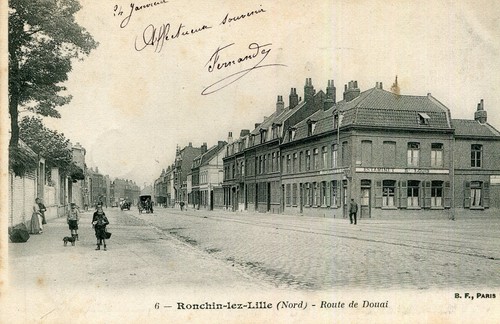 24 Janvier
Affectueux souvenir
Fernande
ESTAMINET St LOUIS
6 — Ronchin-lez-Lille (Nord) - Route de Douai
B. F., PARIS